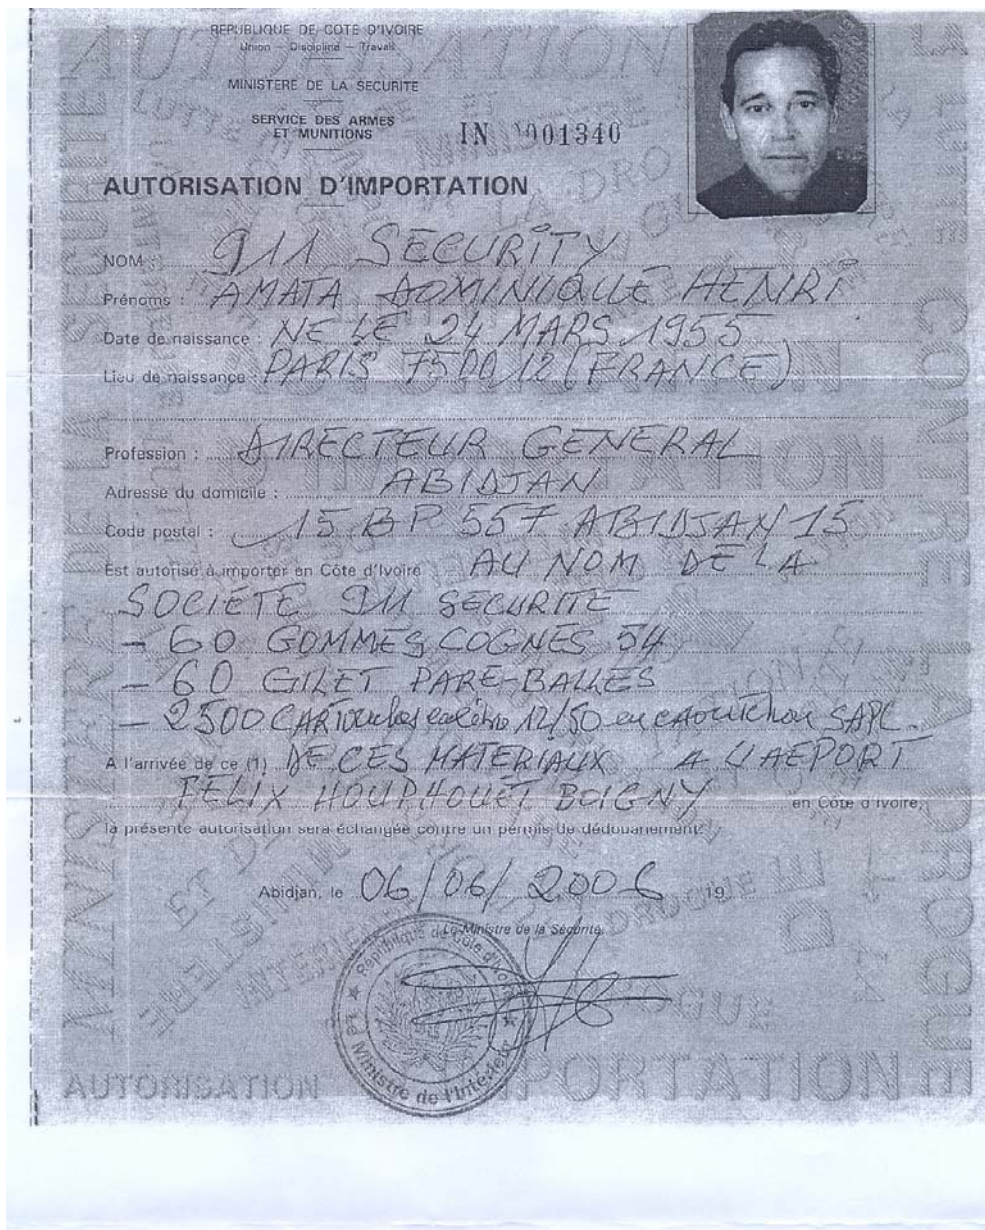 REPUBLIQUE DE COTE D'IVOIRE
Union – Discipline – Travail
MINISTERE DE LA SECURITE
SERVICE DES ARMES
ET MUNITIONS
IN 001340
AUTORISATION D'IMPORTATION
NOM : 911 SECURITY
Prénoms : AMATA DOMINIQUE HENRI
Date de naissance : NE LE 24 MARS 1955
Lieu de naissance : PARIS 7500 12 (FRANCE)
Profession : DIRECTEUR GENERAL
Adresse du domicile : ABIDJAN
Code postal : 15 BP 557 ABIDJAN 15
Est autorisé à importer en Côte d'Ivoire AU NOM DE LA
SOCIÉTÉ 911 SECURITE
- 60 GOMMES COGNES 54
- 60 GILET PARE-BALLES
- 2500 CARTouches calibre 12/50 en caoutchou SAPL
A l'arrivée de ce (1) DE CES MATERIAUX A L'AEPORT
FELIX HOUPHOUET BOIGNY en Côte d'Ivoire,
la présente autorisation sera échangée contre un permis de dédouanement.
Abidjan, le 06/06/2006 19
Le Ministre de la Sécurité,
République de Côte d'Ivoire
Le Ministre de l'Intérieur
AUTORISATION